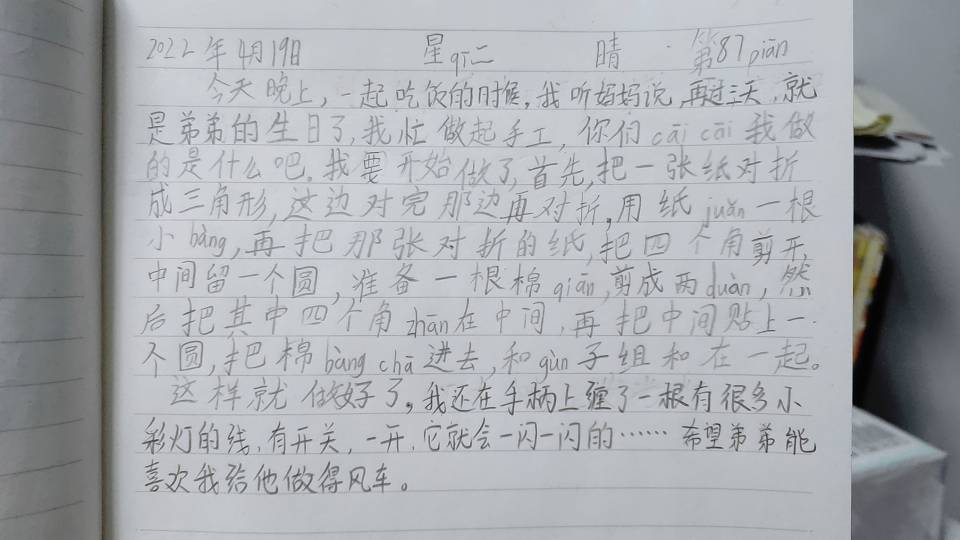 2022年4月19日 星qī二 晴 第87piān
今天晚上,一起吃饭的时候,我听妈妈说,再过三天,就
是弟弟的生日了,我忙做起手工,你们cāi cāi我做
的是什么吧。我要开始做了,首先,把一张纸对折
成三角形,这边对完那边再对折。用纸juǎn一根
小bàng,再把那张对折的纸,把四个角剪开,
中间留一个圆,准备一根棉qiān,剪成两duàn,然
后把其中四个角zhān在中间,再把中间贴上一
个圆,把棉bàng chā进去,和gùn子组和在一起。
这样就做好了。我还在手柄上缠了一根有很多小
彩灯的线,有开关,一开,它就会一闪一闪的……希望弟弟能
喜欢我给他做得风车。